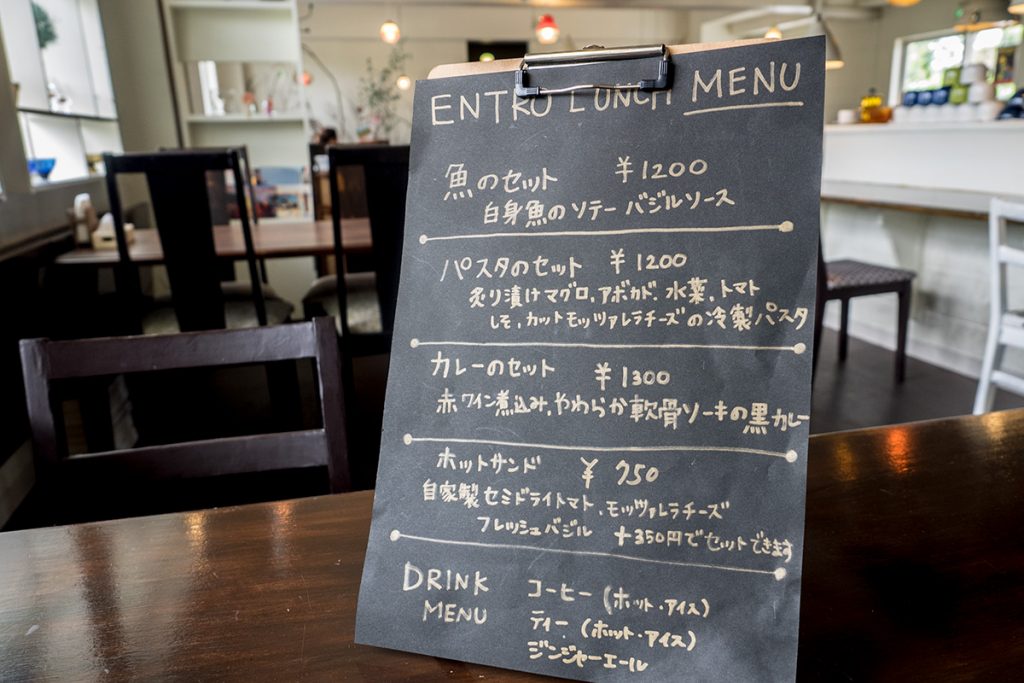 ENTRO LUNCH MENU
魚のセット ¥1200
白身魚のソテー バジルソース
パスタのセット ¥1200
炙り漬けマグロ、アボカド、水菜、トマト
しそ、カットモッツァレラチーズの冷製パスタ
カレーのセット ¥1300
赤ワイン煮込み、やわらか軟骨ソーキの黒カレー
ホットサンド ¥750
自家製セミドライトマト、モッツァレラチーズ
フレッシュバジル +350円でセットできます
DRINK
MENU
コーヒー (ホット・アイス)
ティー (ホット・アイス)
ジンジャーエール